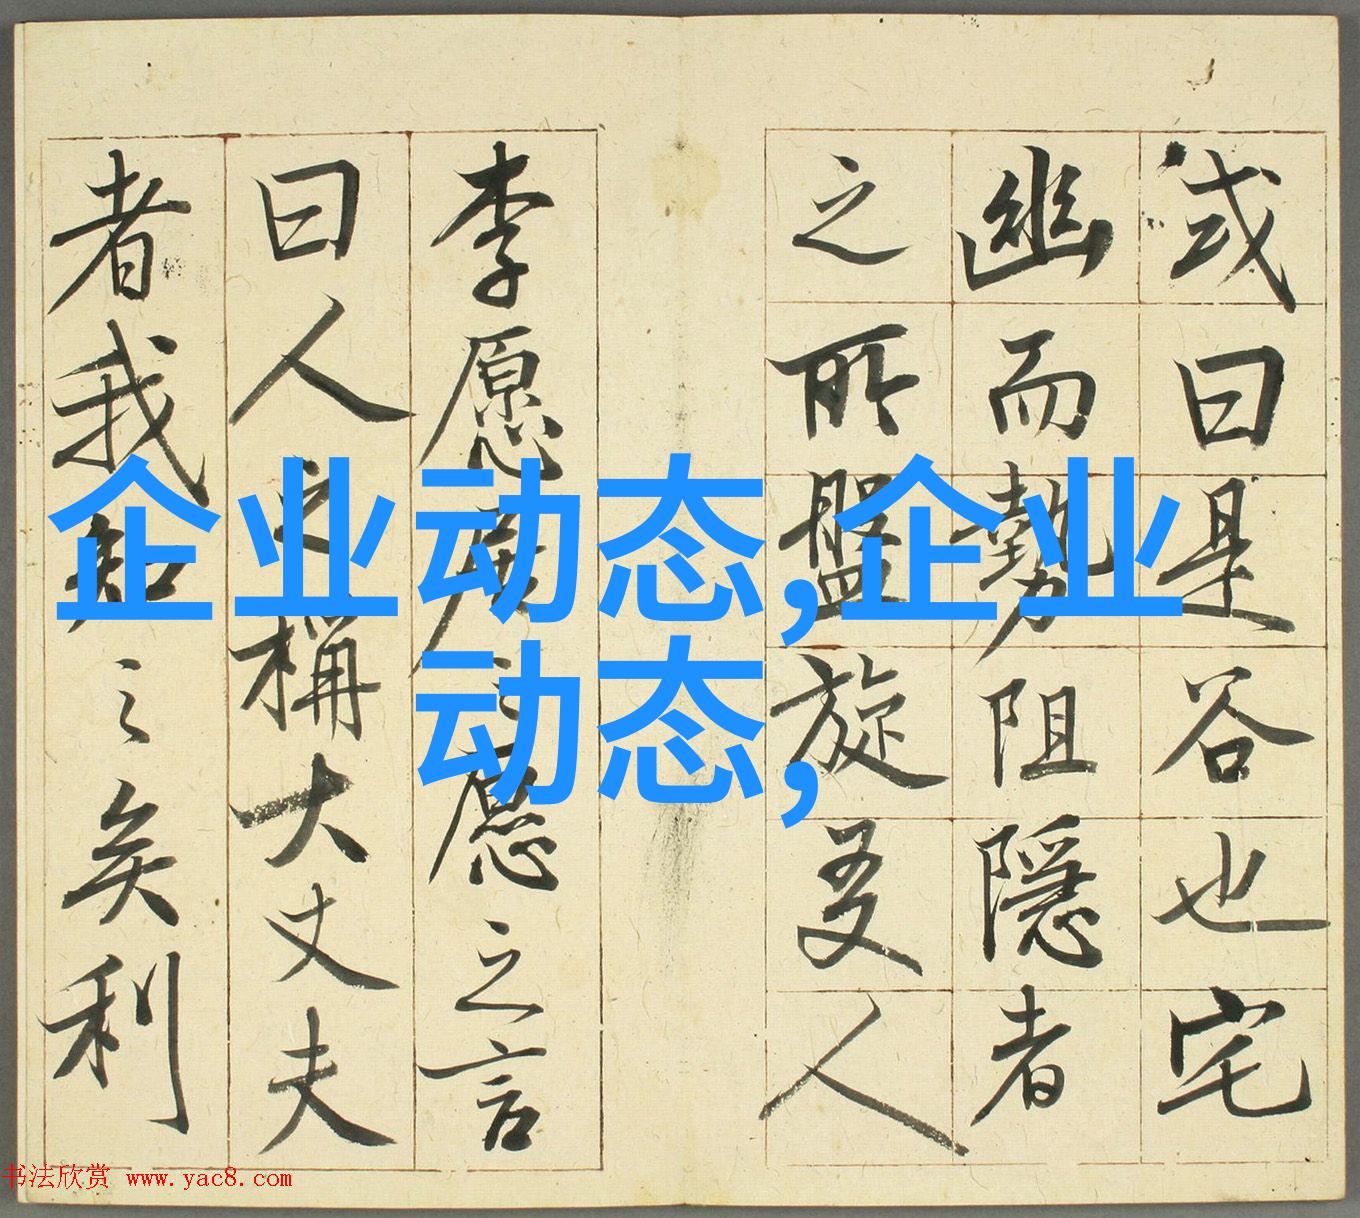 或曰是谷也宅
幽而勢阻隱者
之所盤旋友人
李愿居之愿之言
曰人之稱大丈夫
者我知之矣利
企业动态,企业
动态,
书法欣赏 www.yac8.com